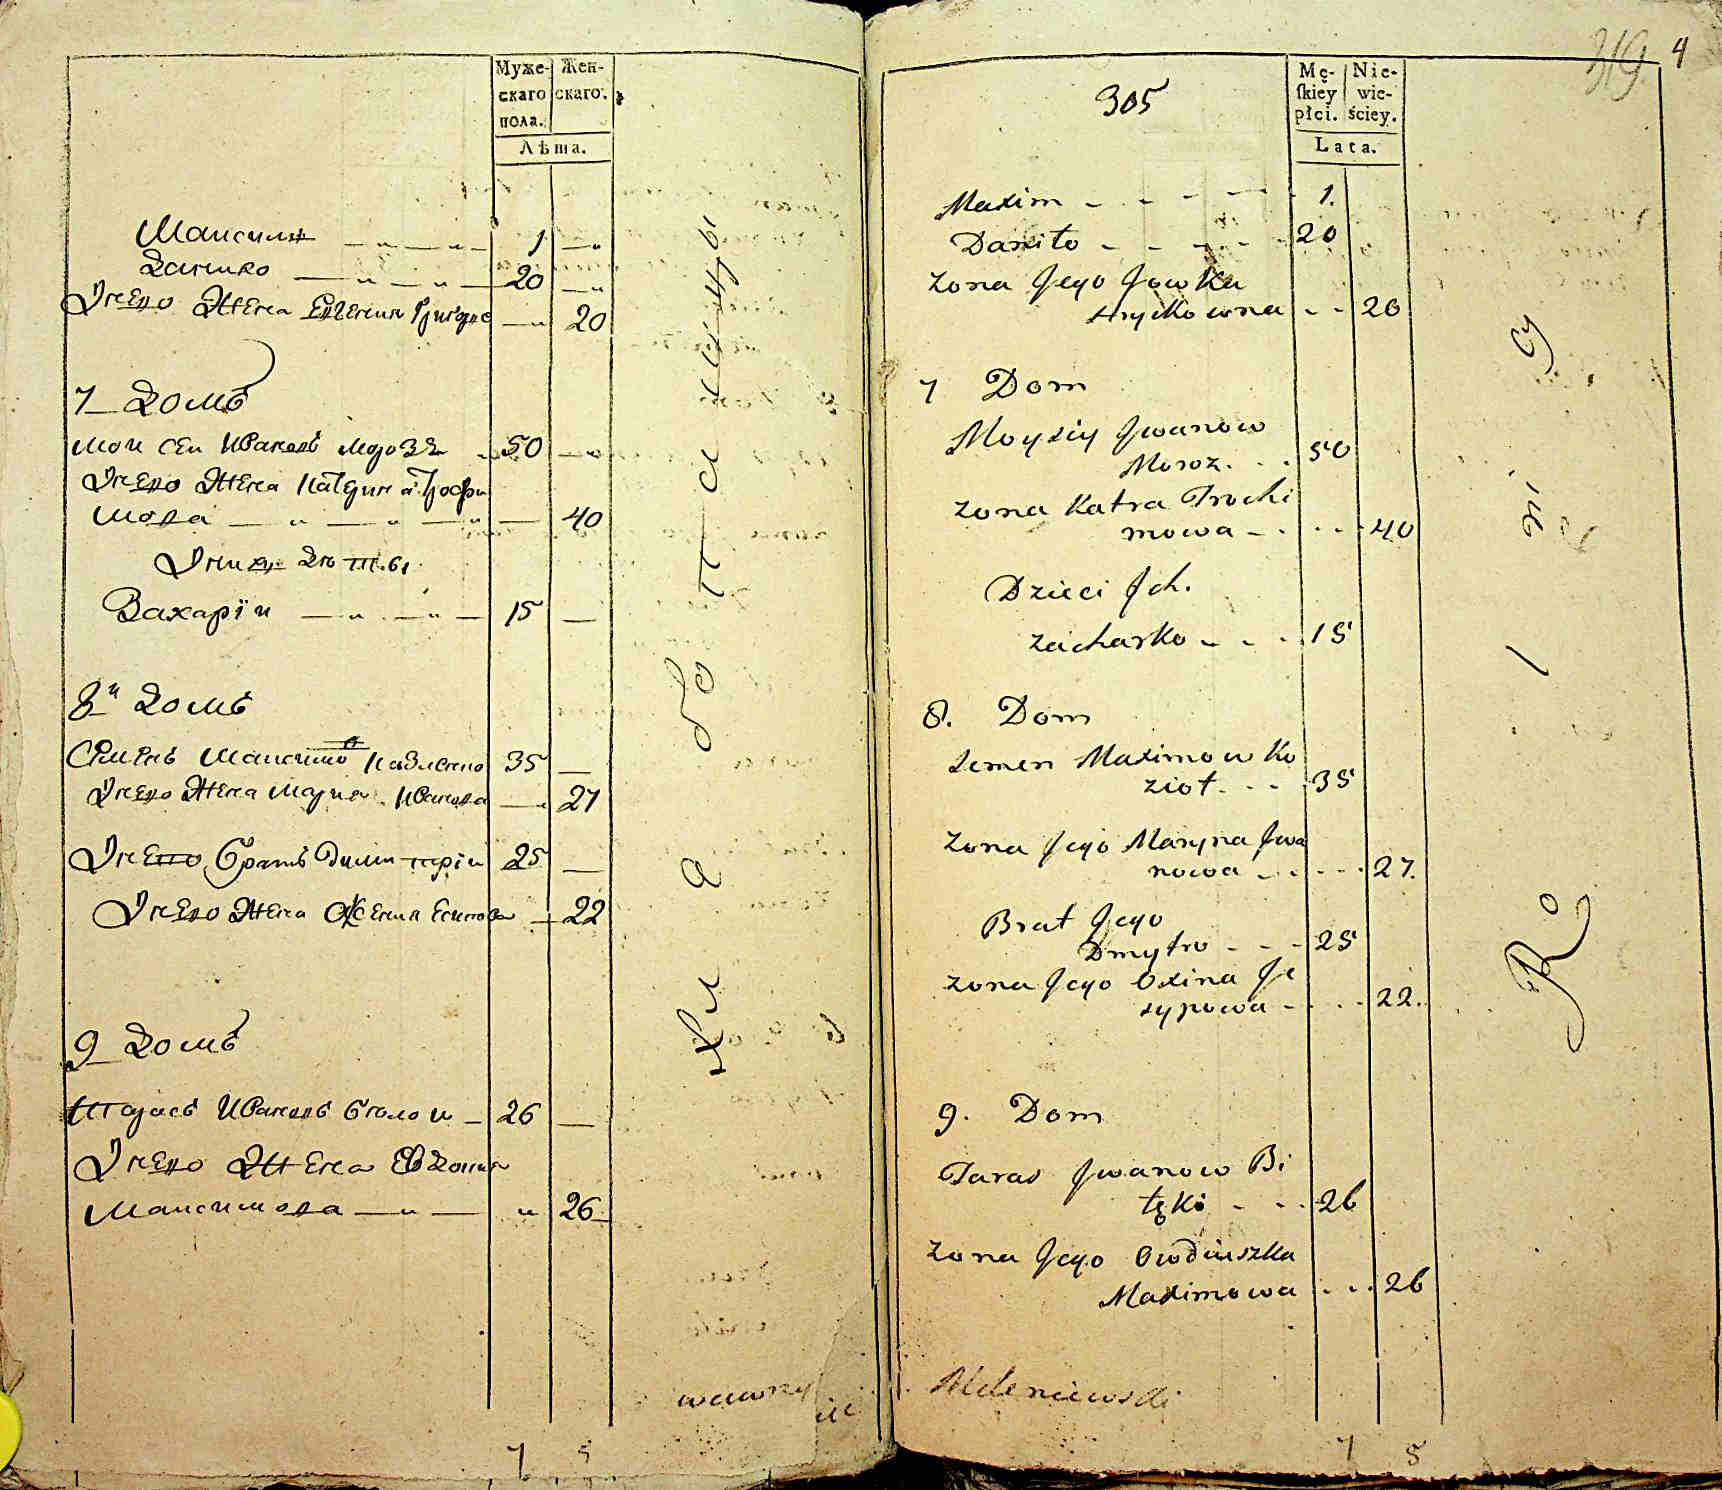 Муже- Жен-
скаго скаго.
пола.
Лѣта.
Максимъ 1
Данило 20
Онего Жена Евгения Григоре 20
7 Домъ
Мои сей Ивановъ Мороз 50
Онего Жена Катерина Трофи
мова 40
Онихъ Дѣти
Захарїи 15
8й Домъ
Семенъ Максимо Козленко 35
Онего Жена Мария Иванова 27
Онего Братъ Дмитрїи 25
Онего Жена Ксения Есипова 22
9 Домъ
Тарасъ Ивановъ 26
Онего Жена Евдокия
Максимова 26
7 5
319 4
305
Mę- Nie-
ſkiey wie-
płci. ściey.
Lata.
Maxim 1.
Daniło 20
Zona Jego Jowka
Hryckowna 20
7 Dom
Moysiy Jwanow
Moroz. 50
Zona Katra Trochi
mowa 40
Dzieci Jch.
Zacharko 15
8. Dom
Semen Maximow Ko
zioł. 35
Zona Jego Maryna Jwa
nowa 27.
Brat Jego
Dmytro 25
Zona Jego Oxina Je
sypowa 22.
9. Dom
Taras Jwanow Bi
łęki 26
Zona Jego Owdiuszka
Maximowa 26
7 5